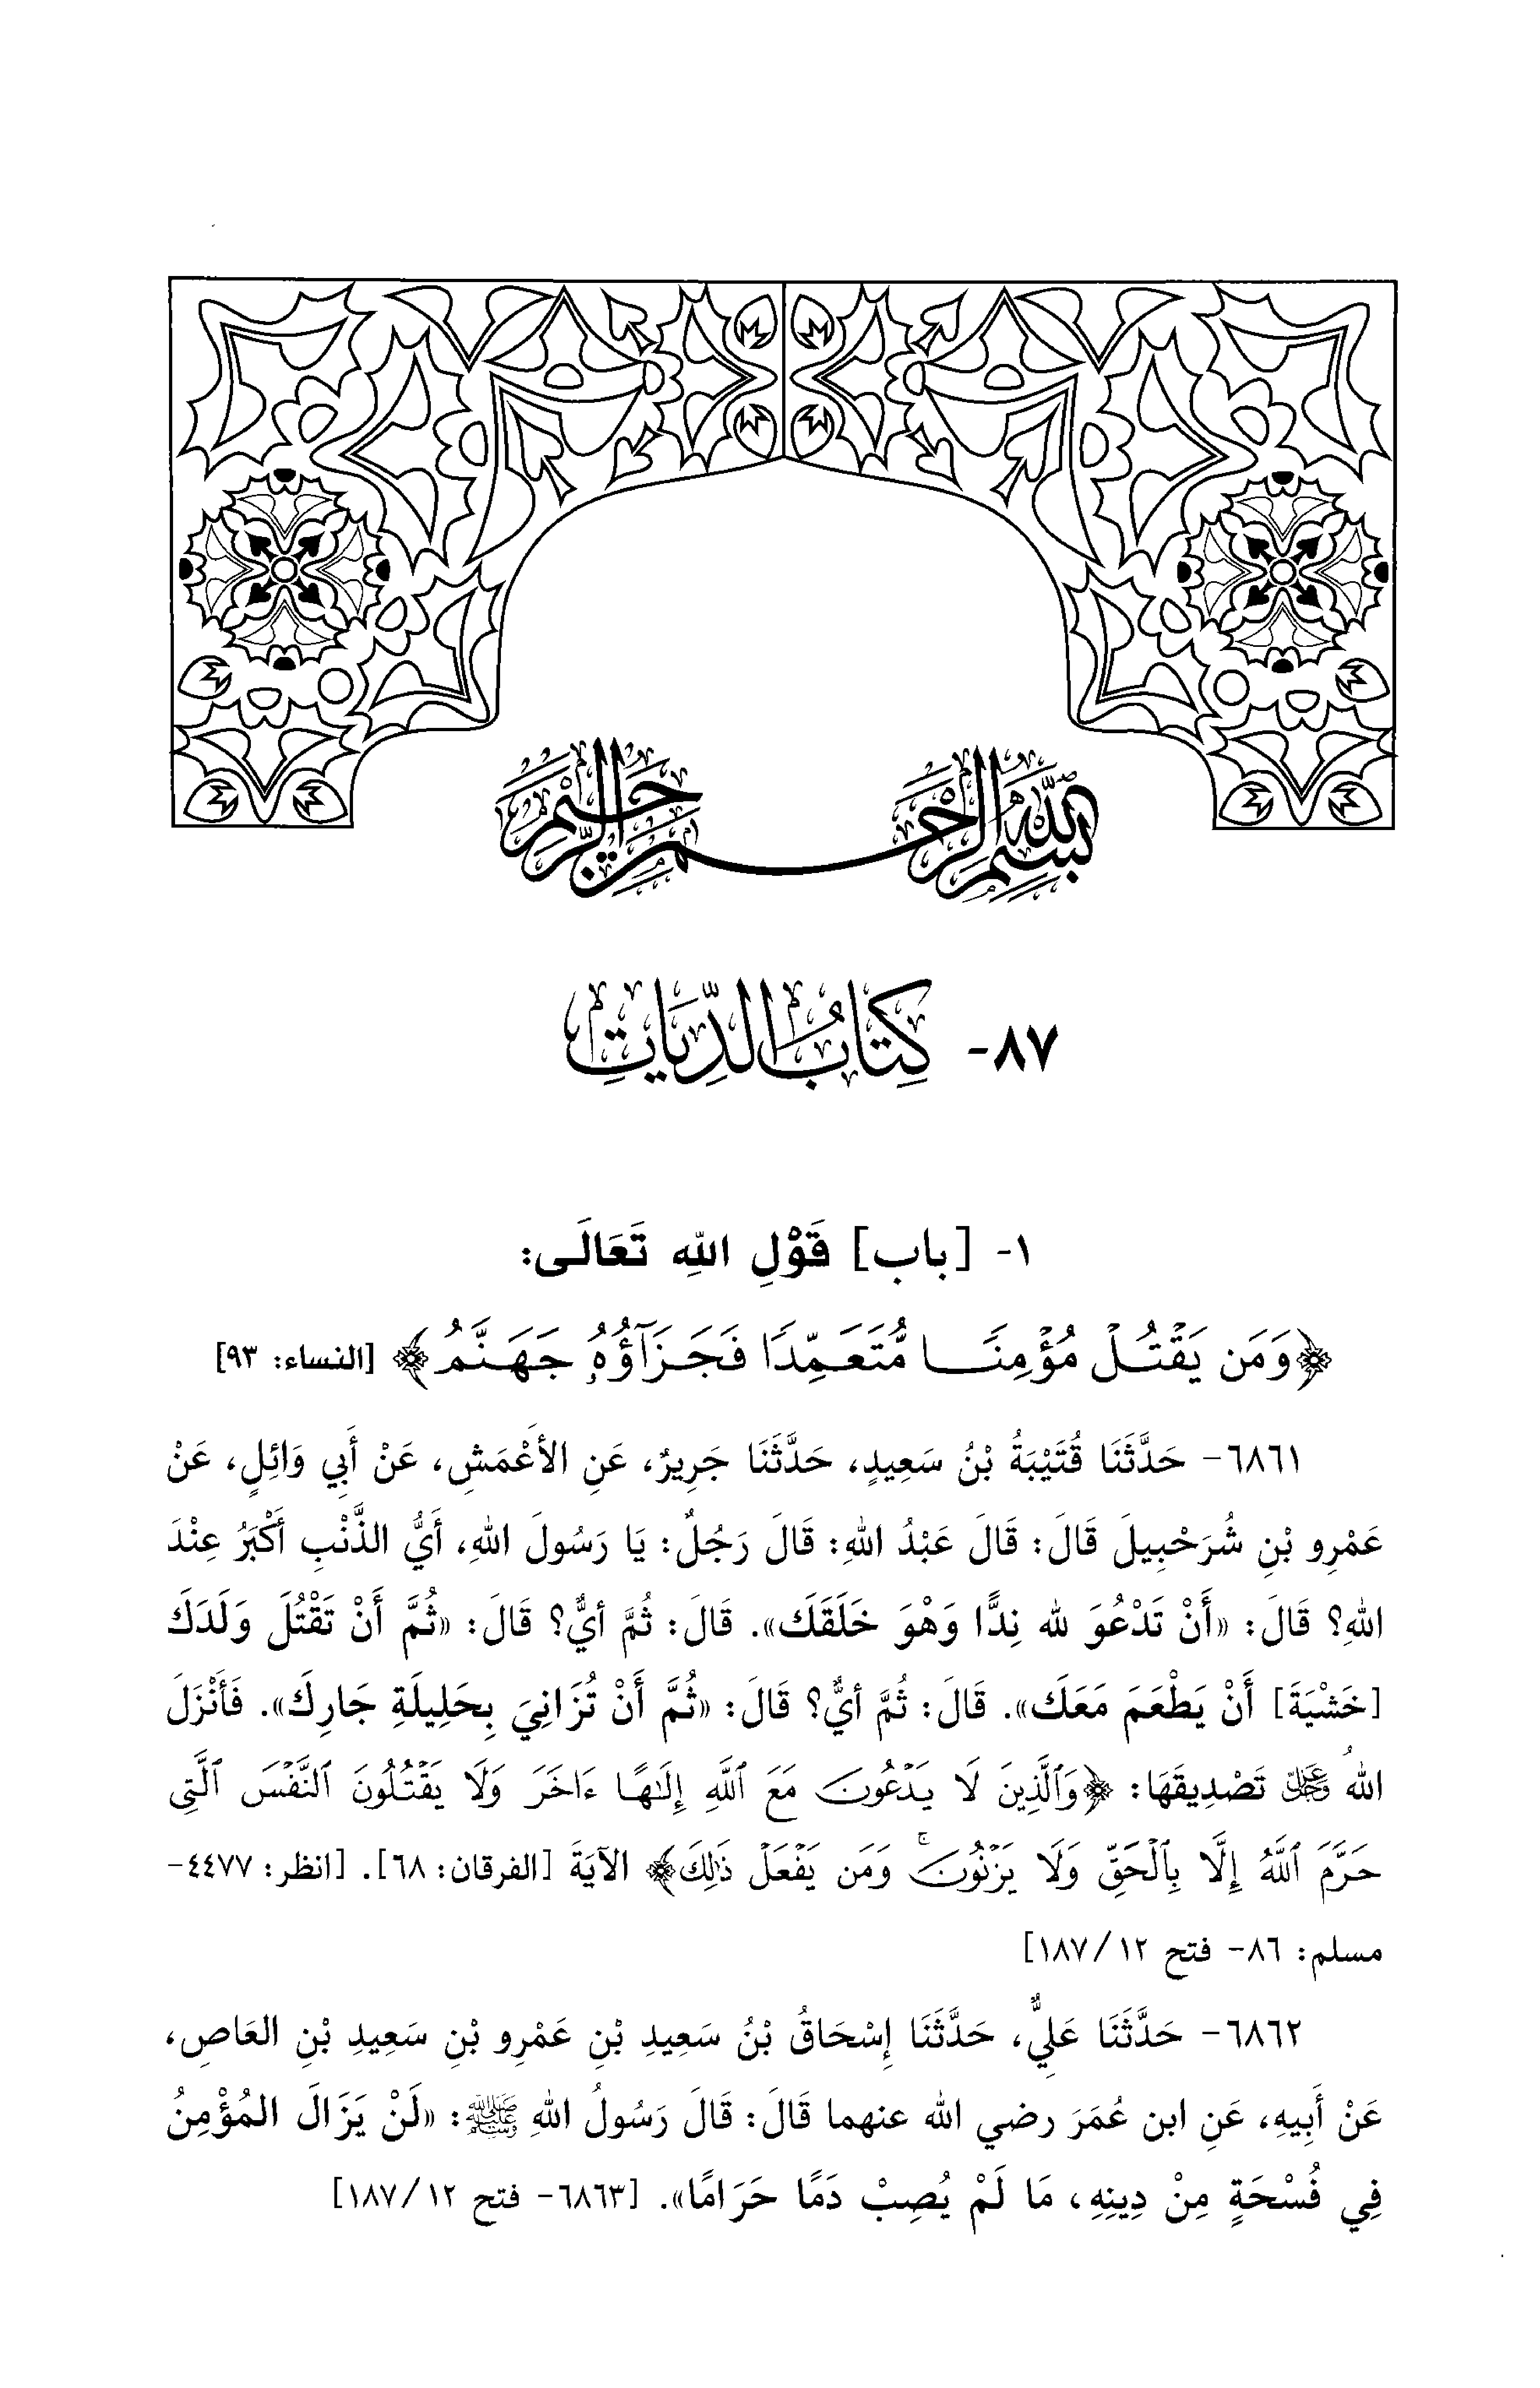 بِسْمِ اللَّهِ الرَّحْمَنِ الرَّحِيمِ
٨٧- كِتَابُ الدِّيَاتِ
١- [باب] قَوْلِ اللهِ تَعَالَى:
﴿وَمَن يَقْتُلْ مُؤْمِنًا مُّتَعَمِّدًا فَجَزَآؤُهُ جَهَنَّمُ﴾ [النساء: ٩٣]
٦٨٦١- حَدَّثَنَا قُتَيْبَةُ بْنُ سَعِيدٍ، حَدَّثَنَا جَرِيرٌ، عَنِ الأَعْمَشِ، عَنْ أَبِي وَائِلٍ، عَنْ
عَمْرِو بْنِ شُرَحْبِيلَ قَالَ: قَالَ عَبْدُ اللهِ: قَالَ رَجُلٌ: يَا رَسُولَ اللهِ، أَيُّ الذَّنْبِ أَكْبَرُ عِنْدَ
اللهِ؟ قَالَ: «أَنْ تَدْعُوَ لله نِدًّا وَهْوَ خَلَقَكَ». قَالَ: ثُمَّ أيٌّ؟ قَالَ: «ثُمَّ أَنْ تَقْتُلَ وَلَدَكَ
[خَشْيَةَ] أَنْ يَطْعَمَ مَعَكَ». قَالَ: ثُمَّ أيٌّ؟ قَالَ: «ثُمَّ أَنْ تُزَانِيَ بِحَلِيلَةِ جَارِكَ». فَأَنْزَلَ
اللهُ عَزَّ وَجَلَّ تَصْدِيقَهَا: ﴿وَٱلَّذِينَ لَا يَدْعُونَ مَعَ ٱللَّهِ إِلَٰهًا ءَاخَرَ وَلَا يَقْتُلُونَ ٱلنَّفْسَ ٱلَّتِى
حَرَّمَ ٱللَّهُ إِلَّا بِٱلْحَقِّ وَلَا يَزْنُونَ ۚ وَمَن يَفْعَلْ ذَٰلِكَ﴾ الآيَةَ [الفرقان: ٦٨]. [انظر: ٤٤٧٧-
مسلم: ٨٦- فتح ١٢/ ١٨٧]
٦٨٦٢- حَدَّثَنَا عَلِيٌّ، حَدَّثَنَا إِسْحَاقُ بْنُ سَعِيدِ بْنِ عَمْرِو بْنِ سَعِيدِ بْنِ العَاصِ،
عَنْ أَبِيهِ، عَنِ ابن عُمَرَ رضي الله عنهما قَالَ: قَالَ رَسُولُ اللهِ ﷺ: «لَنْ يَزَالَ المُؤْمِنُ
فِي فُسْحَةٍ مِنْ دِينِهِ، مَا لَمْ يُصِبْ دَمًا حَرَامًا». [٦٨٦٣- فتح ١٢/ ١٨٧]